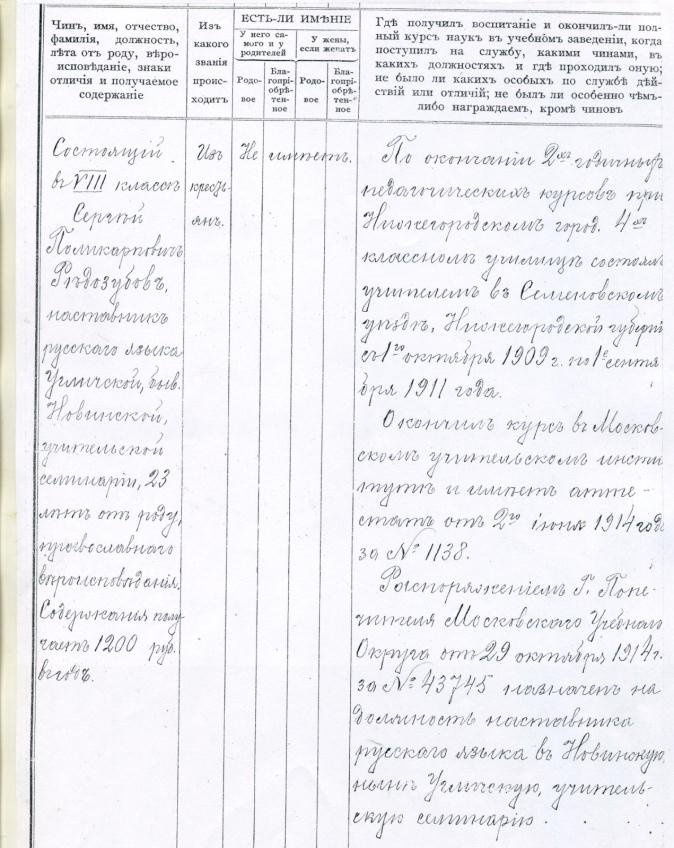 Чинъ, имя, отчество,
фамилія, должность,
лѣта отъ роду, вѣро-
исповѣданіе, знаки
отличія и получаемое
содержаніе
Изъ
какого
званія
проис-
ходитъ
ЕСТЬ-ЛИ ИМѢНІЕ
У него са-
мого и у
родителей
У жены,
если женатъ
Родо-
вое
Бла-
гопрі-
обрѣ-
тен-
ное
Родо-
вое
Бла-
гопрі-
обрѣ-
тен-
ное
Гдѣ получилъ воспитаніе и окончилъ-ли пол-
ный курсъ наукъ въ учебномъ заведеніи, когда
поступилъ на службу, какими чинами, въ
какихъ должностяхъ и гдѣ проходилъ оную;
не было ли какихъ особыхъ по службѣ дѣй-
ствій или отличій; не былъ ли особенно чѣмъ-
либо награждаемъ, кромѣ чиновъ
Состоящій
въ VIII классѣ
Сергѣй
Поликарповичъ
Рѣдозубовъ,
наставникъ
русскаго языка
Угличской, быв.
Новинской,
учительской
семинаріи, 23
лѣтъ отъ роду,
православнаго
вѣроисповѣданія.
Содержанія полу-
чаетъ 1200 руб.
въ годъ.
Изъ
кресть-
янъ.
Не имѣетъ.
По окончаніи 2хъ годичныхъ
педагогическихъ курсовъ при
Нижегородскомъ город. 4хъ
классномъ училищѣ состоялъ
учителемъ въ Семеновскомъ
уѣздѣ, Нижегородской губерніи
съ 1го октября 1909 г. по 1е сентя
бря 1911 года.
Окончилъ курсъ въ Москов-
скомъ учительскомъ инсти
тутѣ и имѣетъ атте-
статъ отъ 2го іюня 1914 года
за № 1138.
Распоряженіемъ Г. Попе-
чителя Московскаго Учебнаго
Округа отъ 29 октября 1914 г.
за № 43745 назначенъ на
должность наставника
русскаго языка въ Новинскую,
нынѣ Угличскую, учитель-
скую семинарію.